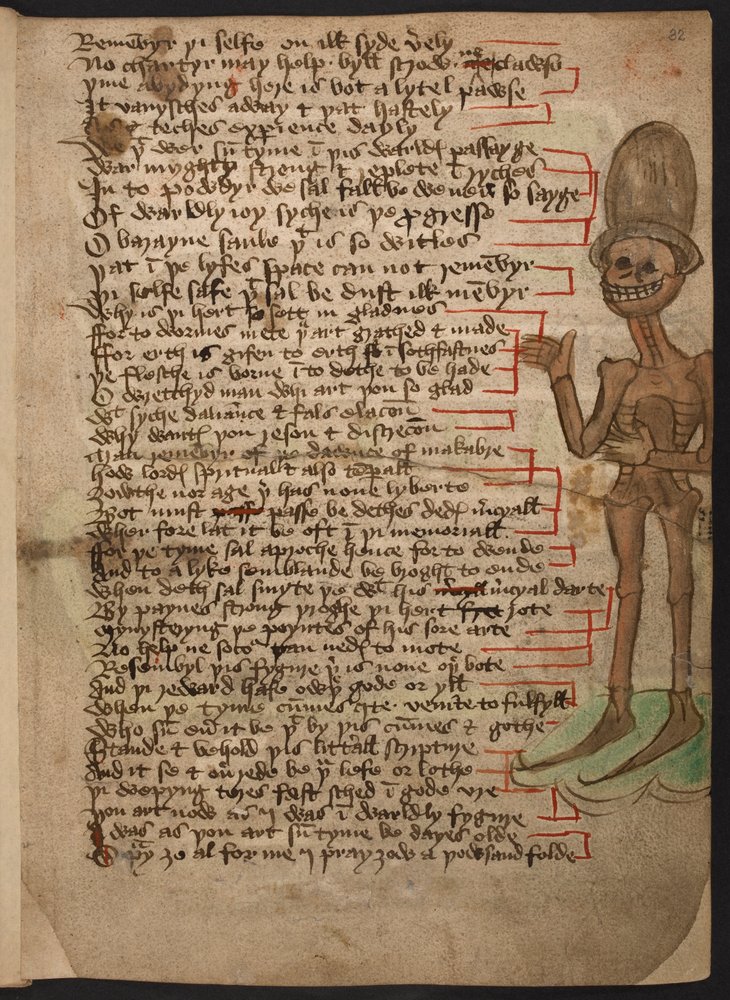 82
Remēbyr þi selfe on ilk syde v̉ely
No chartyr may help · byll scrow ne clawse
Þine abydyng here is bot a lytel pawse
It vanysches away & þat hastely
teches experience dayly
þᵗ wer sū tyme ī þis warldꝭ passayge
War myghty streng & replete ī ryches
In to powdyr we sal fall be we neuer so sayge
Of warldly ioy syche is þe ꝓgresse
O barayne saule þᵗ is so witles
Þat ī þe lyfes space can not remēbyr
Þi selfe safe þᵗ sal be dust ilk mēbyr
Why is þi hert so sett in gladnes
ffor to wormes mete þᵘ art grathed & made
ffor erth is gifen to erth ī sothfastnes
Þe flesche is borne ī to dethe to be hade
O wretchyd man whi art þou so glad
Wᵗ syche daliance & fals elacōn
Why wantꝭ þou reson & discrecōn
Man remēbyr of þe dawnce of makabre
how lordꝭ spiritual & also tēpall
Zowthe nor age þᵗ has none lyberte
Bot must passe be dethes dedꝭ m̉cyall
Wher fore lat it be oft ī þi memoriall
ffor þe tyme sal aproche hence for to wende
And to a lyke semblande be broght to ende
When deth sal smyte þe wᵗ his m̉cyal darte
By paynes strong þroghe þi hert rote
Mynystryng þe poyntes of his sore arte
No help ne socoʳ þan nedꝭ to mote
Resembyl þis fygure þᵗ is none oþ̉ bote
And þi reward hafe owþ̉ gode or yll
When þe tyme cūmes of · venite to fulfyll
Who sū eū it be þᵗ by þis cūmes & gothe
Stande & behold þis litt̉all scripture
And it se & oủrede be þᵘ lefe or lothe
Þi wepyng teres fast sched ī gode ure
Þou art now as I was ī warldly fygure
I was as þou art sū tyme be dayes olde
pray zo al for me I pray zow a þowsand folde